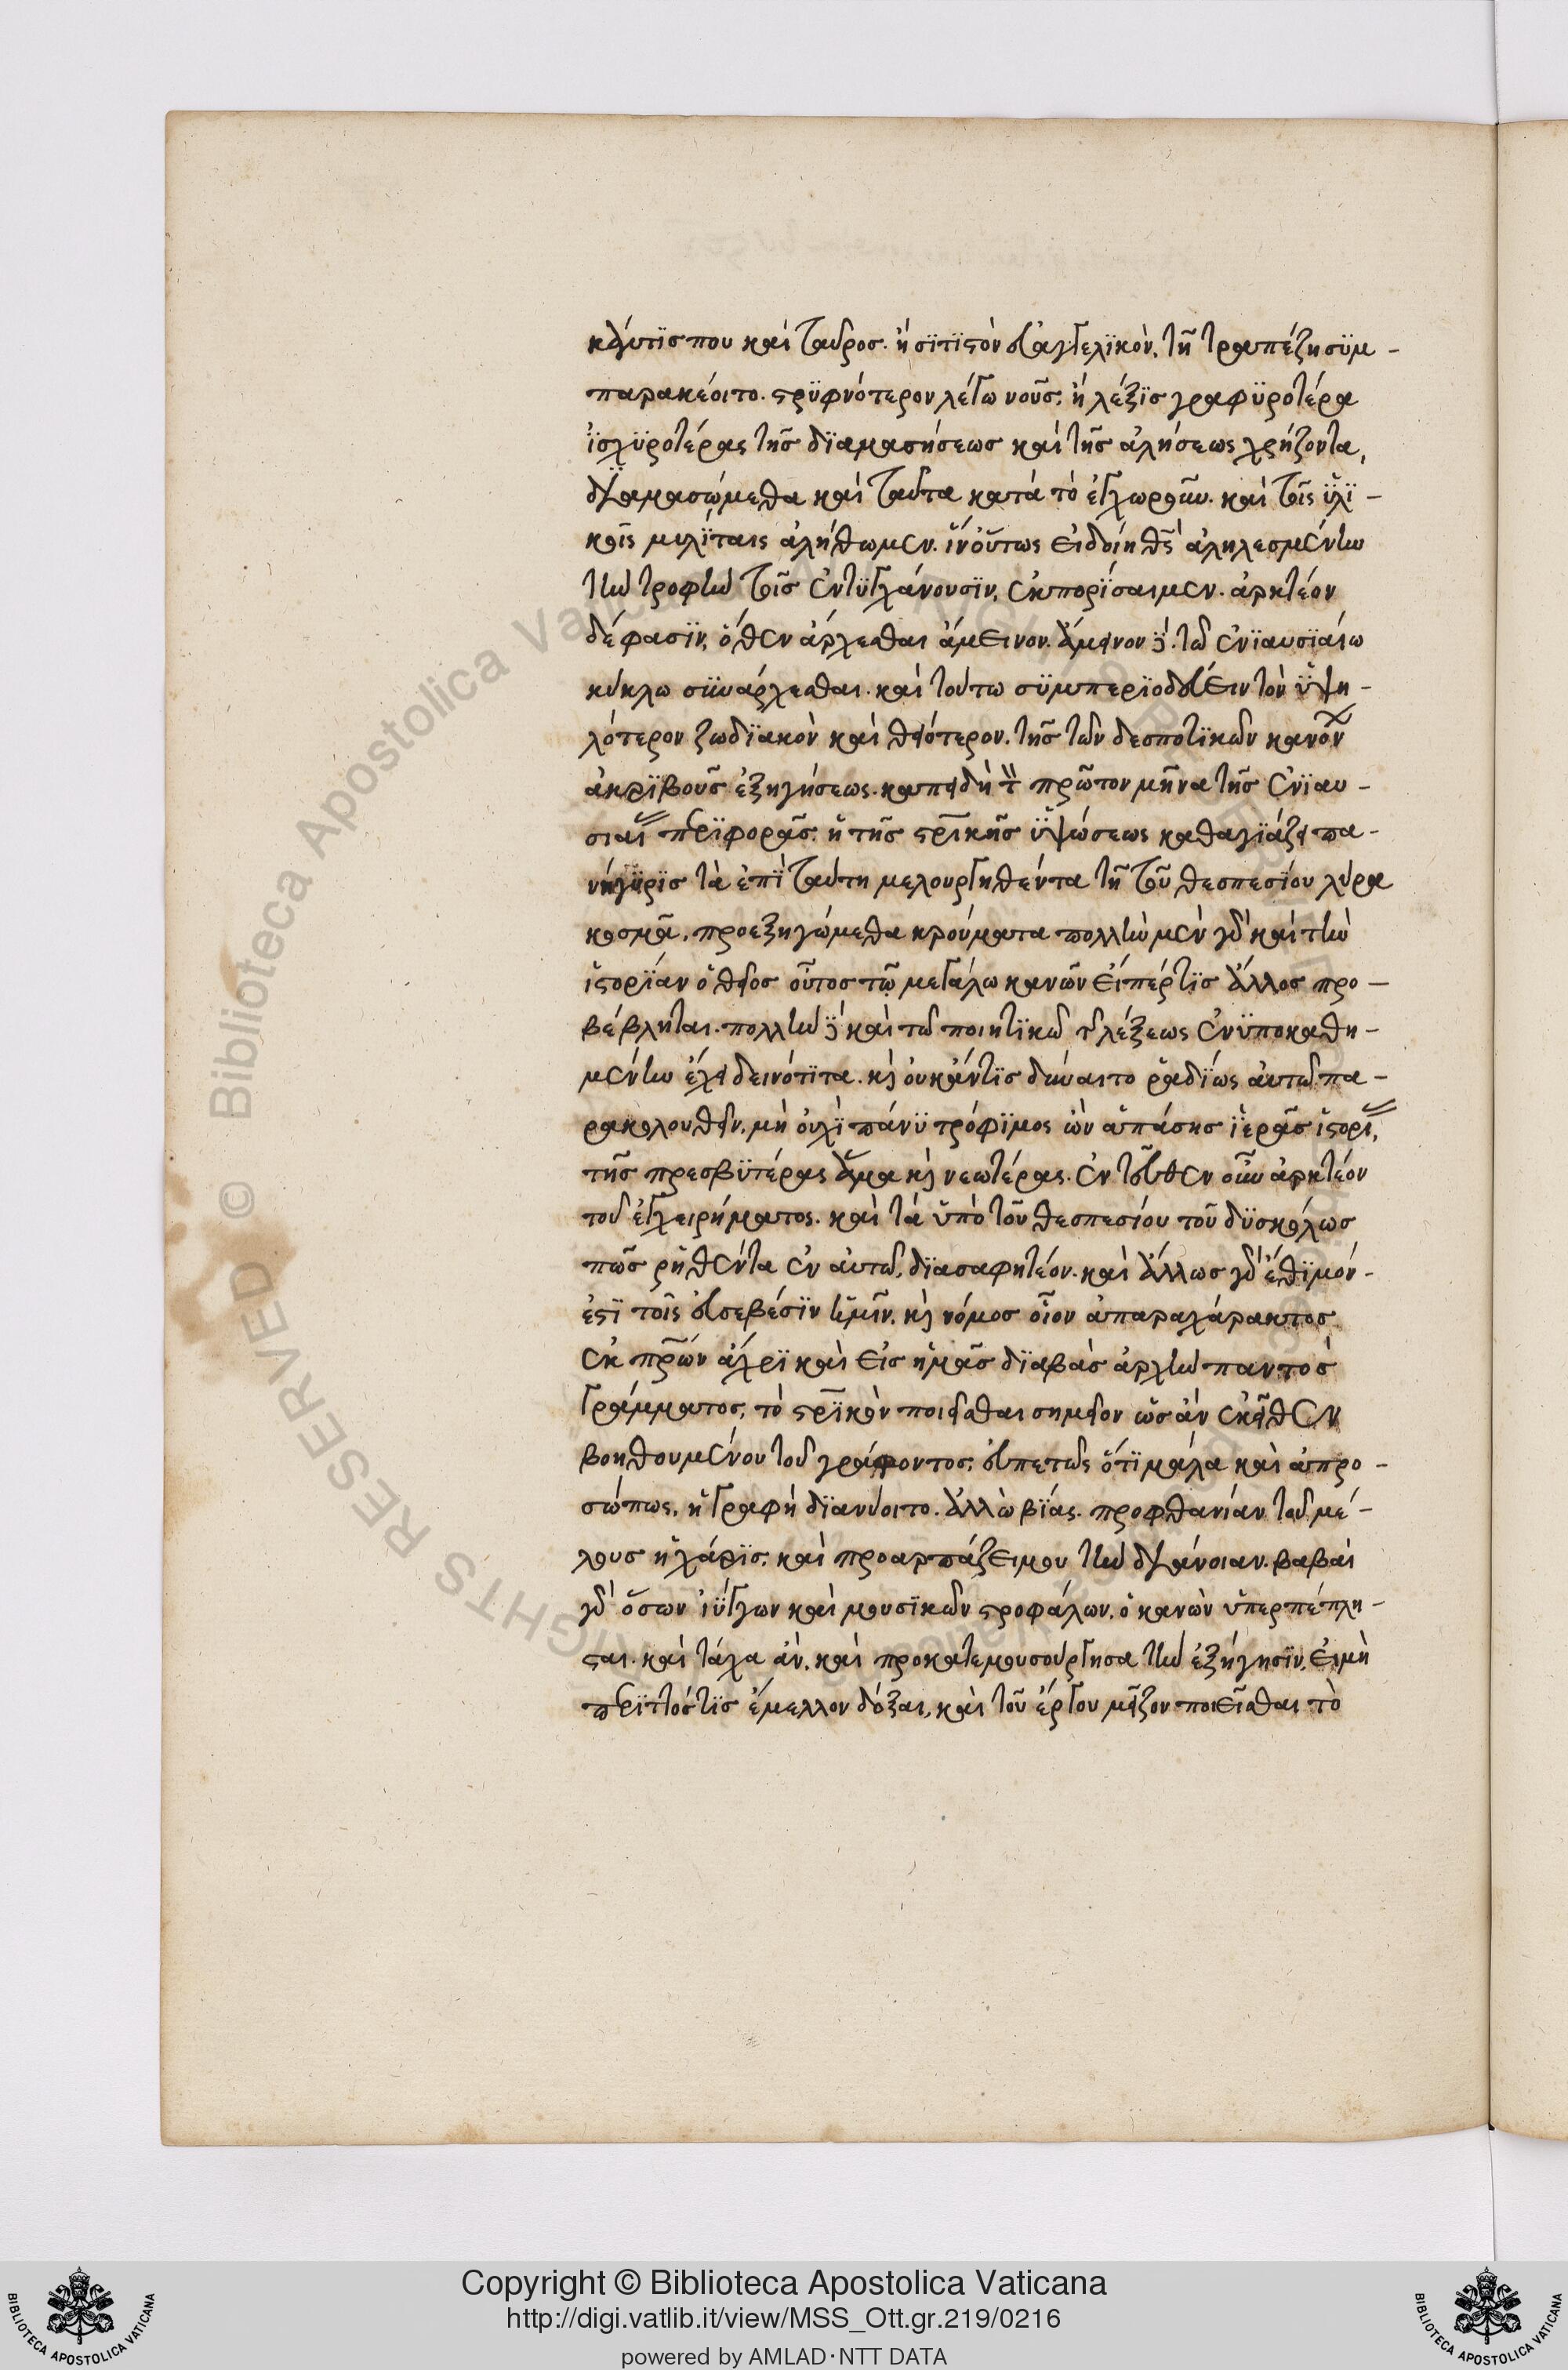 κἄν τις που καὶ ταῦρος. ἢ σιτιστὸν εὐαγγελικὸν, τῇ τραπέζη συμ-
παρακέοιτο. στρυφνότερον λέγω νοῦς, ἢ λέξις γραφυροτέρα
ἰσχυροτέρας τῆς διαμασήσεως καὶ τῆς ἀλήσεως χρήζοντα,
διαμασώμεθα καὶ ταῦτα κατὰ τὸ ἐγχωροῦν. καὶ ταῖς ὑλι-
καῖς μυλίταις ἀλήθωμεν. ἵν' οὕτως εἰ δοίη θεὸς ἀληλεσμένην
τὴν τροφὴν τοῖς ἐντυγχάνουσιν, ἐκπορίσαιμεν. ἀρκτέον
δέ φασιν, ὅθεν ἄρχεσθαι ἄμεινον. ἄμεινον δὲ. τῶ ἐνιαυσιαίω
κύκλω συνάρχεσθαι. καὶ τούτω συμπεριοδεύειν τὸν ὑψη-
λότερον ζωδιακὸν καὶ θειότερον. τῆς τῶν δεσποτικῶν κανόνων
ἀκριβοῦς ἐξηγήσεως. καπειδὴ τὸν πρῶτον μῆνα τῆς ἐνιαυ-
σιαίας περιφορᾶς, ἡ τῆς σταυρικῆς ὑψώσεως καθαγιάζει πα-
νήγυρις τὰ ἐπὶ ταύτη μελουργηθέντα τῆ τοῦ θεσπεσίου λύρα
κοσμᾶ, προεξηγώμεθα κρούματα πολλὴν μὲν γὰρ καὶ τὴν
ἱστορίαν ὁ θεῖος οὗτος τῶ μεγάλω κανὼν εἴπέρ τις ἄλλος προ-
βέβληται. πολλὴν δὲ καὶ τῶ ποιητικῶ τῆς λέξεως ἐνυποκαθη-
μένην ἔχει δεινότιτα. καὶ οὐκ ἄν τις δύναιτο ῥαδίως αὐτῶ πα-
ρακολουθεῖν, μὴ οὐχὶ πάνυ τρόφιμος ὢν ἁπάσης ἱερᾶς ἱστορίας,
τῆς πρεσβυτέρας ἅμα καὶ νεωτέρας. ἐντεῦθεν οὖν ἀρκτέον
τοῦ ἐγχειρήματος. καὶ τὰ ὑπὸ τοῦ θεσπεσίου τοῦ δυσκόλως
πῶς ῥηθέντα ἐν αὐτῶ, διασαφητέον. καὶ ἄλλως γὰρ ἔθιμόν-
ἐστι τοῖς εὐσεβέσιν ἡμῖν. καὶ νόμος οἷον ἀπαραχάρακτος
ἐκ πατέρων ἄχρι καὶ εἰς ἡμᾶς διαβὰς ἀρχὴν παντὸς
γράμματος, τὸ σταυρικὸν ποιεῖσθαι σημεῖον ὡς ἂν ἐκεῖθεν
βοηθουμένου τοῦ γράφοντος, εὐπετῶς ὅτι μάλα καὶ ἀπρο-
σώπως, ἡ γραφὴ διανύοιτο. ἀλλ' ὢ βίας. προφθανίαν τοῦ μέ-
λους ἡ χάρις, καὶ προαρπάζει μου τὴν διάνοιαν. βαβαὶ
γὰρ ὅσων ἰύγγων καὶ μουσικῶν στροφάλων, ὁ κανὼν ὑπερπέπλη-
σται. καὶ τάχα ἂν, καὶ προκατεμουσούργησα τὴν ἐξήγησιν, εἰ μὴ
περιττός τις ἔμελλον δόξαι, καὶ τοῦ ἔργου μεῖζον ποιεῖσθαι τὸ
Copyright © Biblioteca Apostolica Vaticana
http://digi.vatlib.it/view/MSS_Ott.gr.219/0216
powered by AMLAD·NTT DATA